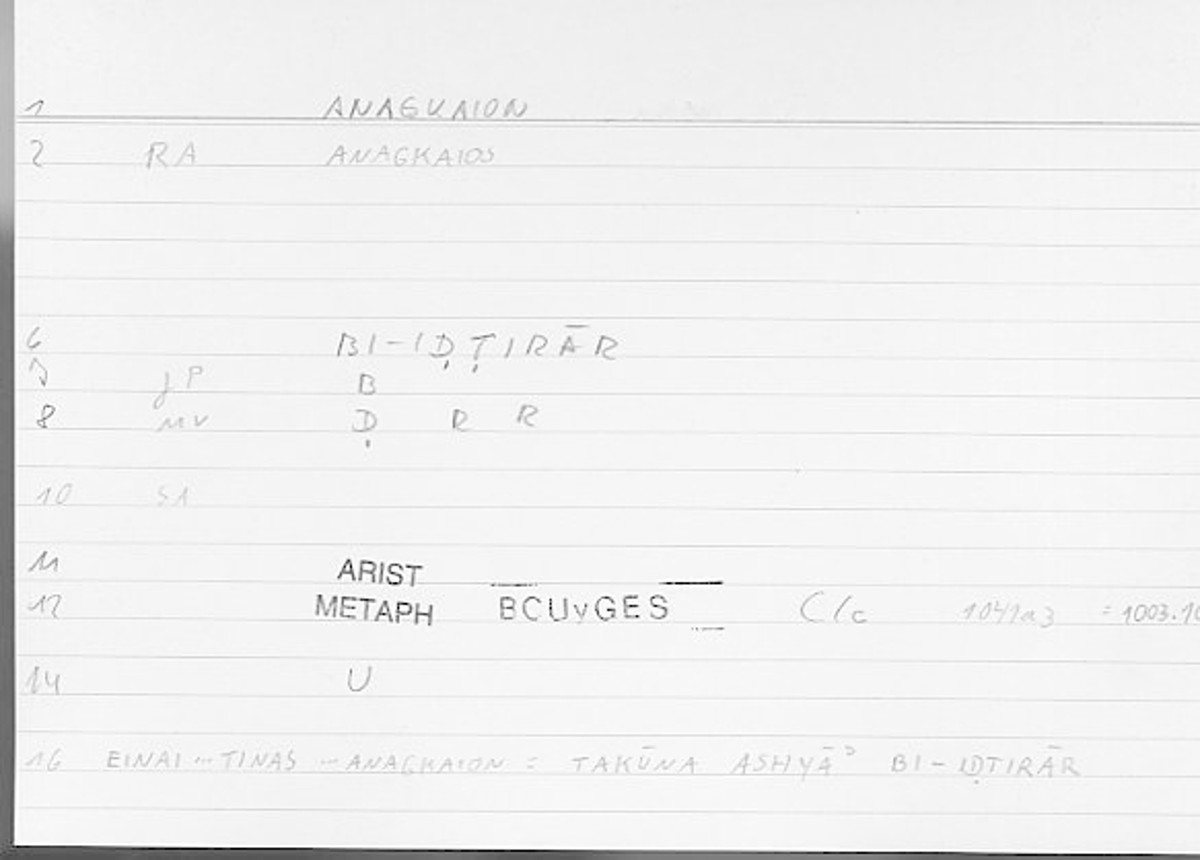 1 ANAGKAION
2 RA ANAGKAIOS
6 BI-IḌṬIRĀR
7 JP B
8 MV Ḍ R R
10 S1
11 ARIST
12 METAPH BCUvGES C/c 1041a3 = 1003.10
14 U
16 EINAI ... TINAS ... ANAGKAION = TAKŪNA ASHYĀʾ BI-IḌTIRĀR